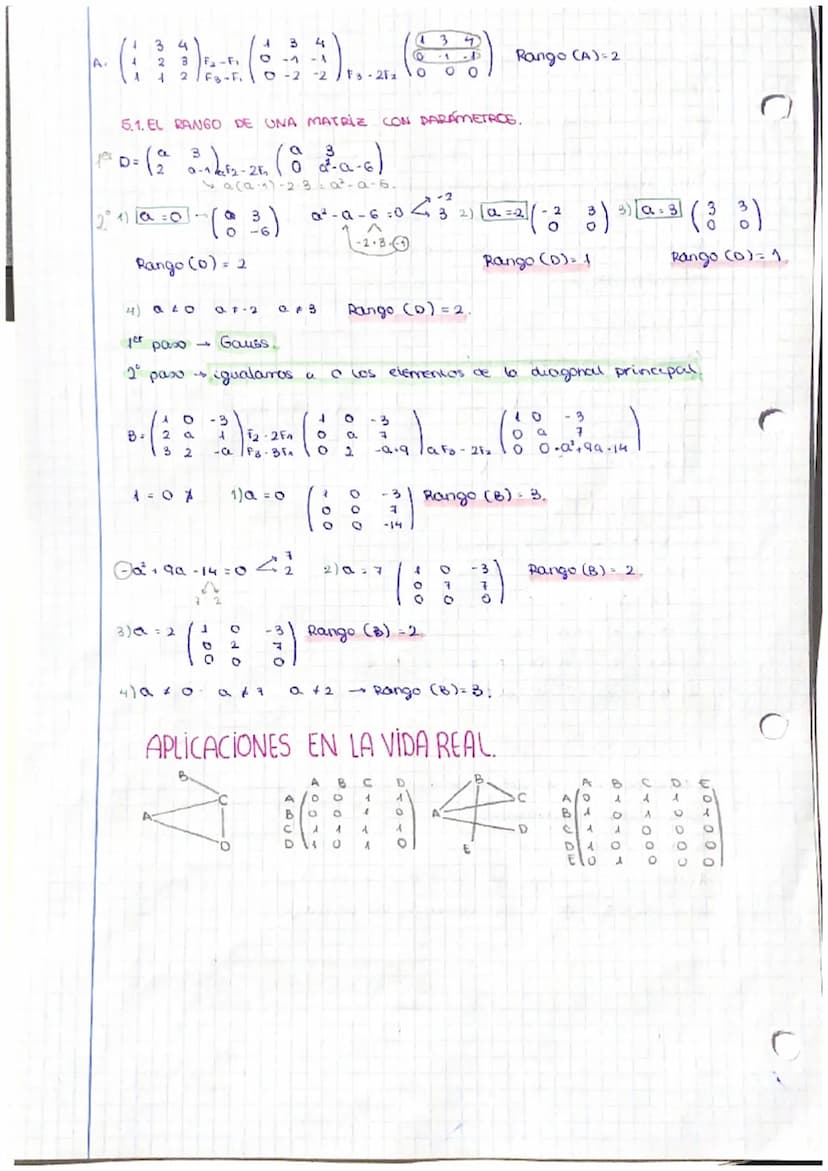 A. (1 3 4 / 1 2 3 / 1 1 2) F2-F1 F3-F1 (1 3 4 / 0 -1 -1 / 0 -2 -2) F3-2F2 (1 3 4 / 0 -1 -1 / 0 0 0) Rango (A)=2
5.1. EL RANGO DE UNA MATRIZ CON PARÁMETROS.
D= (a 3 / 2 a-1) aF2-2F1 (a 3 / 0 a²-a-6)
a(a-1)-2·3 = a²-a-6.
2º 1) a=0 → (0 3 / 0 -6) a²-a-6=0 < -2 3 2) a=-2 (-2 3 / 0 0) 3) a=3 (3 3 / 0 0)
-2·3·(-1)
Rango (D) = 2 Rango (D)=1 Rango (D)=1.
4) a≠0 a≠-2 a≠3 Rango (D)=2.
1er paso → Gauss.
2º paso → igualamos a 0 los elementos de la diagonal principal.
B= (1 0 -3 / 2 a 1 / 3 2 -a) F2-2F1 F3-3F1 (1 0 -3 / 0 a 7 / 0 2 -a+9) aF3-2F2 (1 0 -3 / 0 a 7 / 0 0 -a²+9a-14)
1=0 1) a=0 (1 0 -3 / 0 0 7 / 0 0 -14) Rango (B)=3.
-a²+9a-14=0 < 7 2 2) a=7 (1 0 -3 / 0 7 7 / 0 0 0) Rango (B)=2.
7 2
3) a=2 (1 0 -3 / 0 2 7 / 0 0 0) Rango (B)=2
4) a≠0 a≠7 a≠2 → Rango (B)=3.
APLICACIONES EN LA VIDA REAL.
B C A D
A B C D
A 0 0 1 1
B 0 0 1 0
C 1 1 1 1
D 1 0 1 0
B C A D E
A B C D E
A 0 1 1 1 0
B 1 0 1 0 1
C 1 1 0 0 0
D 1 0 0 0 0
E 0 1 0 0 0